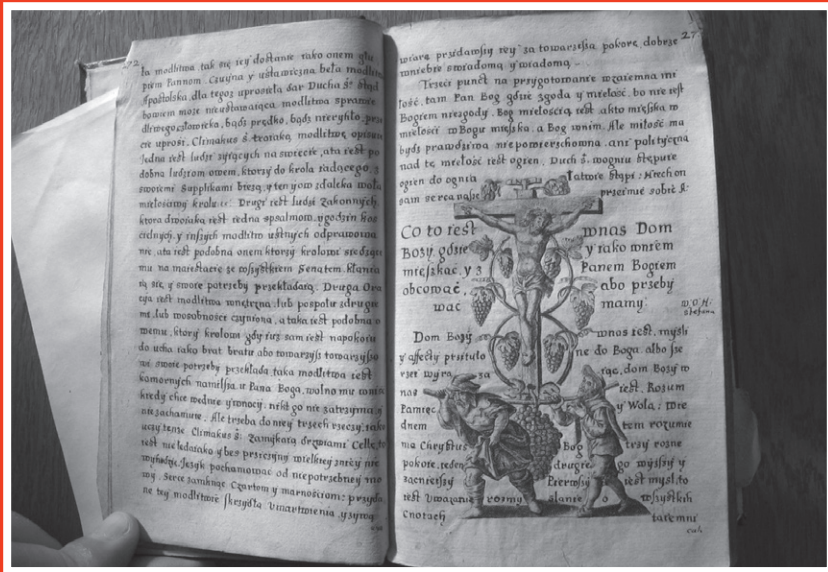 272
ta modlitwa tak się iey dostanie iako onem głu
piem Pannom. Czuyna y ustawiczna beła modlitwa
Apostolska, dla tegoż uprosiła dar Ducha S. Stąd
bowiem może nieustawaiąca modlitwa sprawie
dliwego człowieka, bądź prędko, bądź nierychło, prze
cię uprosi. Climakus S. troiaką modlitwę opisuie
Jedna iest ludzi żyiących na swiecie, a ta iest po
dobna ludziom owem, ktorzy do krola iadącego, z
swoiemi Supplikami bieżą, y ten yow zdaleka woła
miełosciwy krolu &c. Druga iest ludzi zakonnych,
ktora dwoiaka iest iedna Psalmow, y godzin Kos
cielnych, y inszych modlitw ustnych odprawowa
nie, a ta iest podobna onem ktorzy krolowi siedzące
mu na maiestacie ze wszystkiem Senatem. Kłania
ią się, y swoie potrzeby przekładaią. Druga Ora
cya iest modlitwa wnętrzna, lub pospołu z drugie
mi, lub w osobności czyniona, a taka iest podobna o
wemu, ktory krolowi gdy iuż sam iest na pokoiu
do ucha iako brat bratu abo towarzysz towarzyszo
wi swoie potrzeby przekłada, taka modlitwa iest
kamornych namilsza u Pana Boga, wolno mu
kiedy chce we dnie y w nocy, nikt go nie zatrzyma, y
nie zachamuie. Ale trzeba do niey trzech rzeczy, iako
uczy tenże Climakus S. Zamykaią drzwiami Celle, to
iest nie ledaiako y bez przyczyny wielkiey z niey nie
wychodzić, Język pochamować od niepotrzebney mo
wy. Serce zamknąć Czartom y marnościom: przyda
ne tey modlitwie skrzydła Umartwienia, y żywą
27
wiarę przydawszy iey za towarzysza pokorę, dobrze
w niebie swiadomą y wiadomą.
Trzeci punct na przygotowanie wzaiemna mi
łość, tam Pan Bog gdzie zgoda y miełość, bo nie iest
Bogiem niezgody. Bog miełością iest, a kto mięszka w
miełości w Bogu mięszka, a Bog w nim. Ale miłość ma
bydź prawdziwa nie powierzchowna, ani polityczna
nad tę miełość iest ogien, Duch S. w ogniu stępuie
ogien do ognia latwie stąpi: Niech on
sam serca nasze przeimie sobie &:
Co to iest w nas Dom
Boży, gdzie y iako w niem
mięszkac, y z Panem Bogiem
obcować, abo przeby
wać mamy.
W. O. H.
Stefana
Dom Boży w nas iest, mysli
y affecty przytulo ne do Boga albo że
rzet wyra za iąc, dom Boży w
nas iest. Rozum
Pamięć y Wola: We
dnem tem rozumie
ma Chrystus bog trzy rozne
pokoie, ieden drugie go wyższy y
zacnieyszy Pierwszy iest mysl, to
iest Uważanie rozmy slanie o wszystkich
Cnotach taiemni
cach